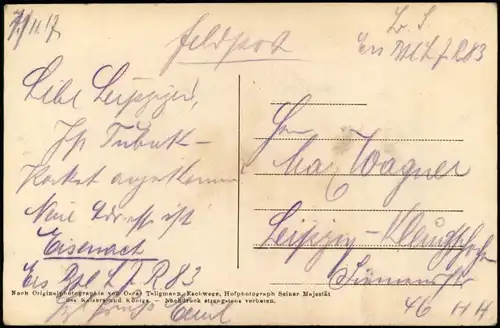 7/11.17
Feldpost
Lb. S.
Ers Btl L.J.R. 83
Liebe Leipziger,
Ihr Tabak-
Packet angekommen
Neue Adresse ist
Eisenach
Ers Btl L.J.R. 83
Gruß Emil
Nach Originalphotographie von Oscar Tellgmann, Eschwege, Hofphotograph Seiner Majestät
des Kaisers und Königs. — Nachdruck strengstens verboten.
Herrn
Max Wagner
Leipzig-Kleinzschocher
Siemensstr
46 H H